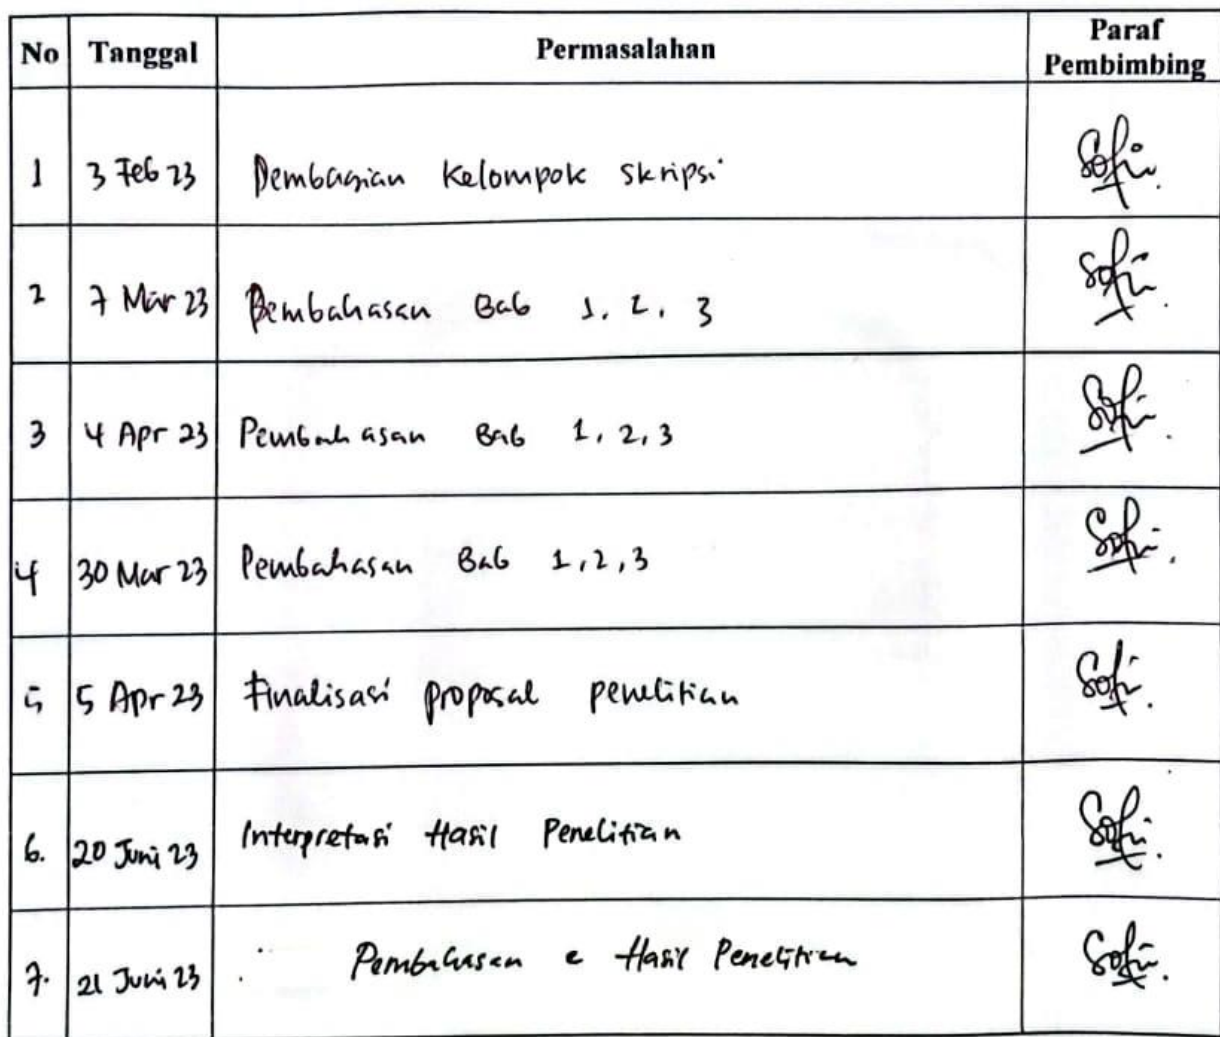 No Tanggal Permasalahan Paraf
Pembimbing
1 3 Feb 23 Pembagian Kelompok Skripsi Sofi
2 7 Mar 23 Pembahasan Bab 1, 2, 3 Sofi
3 4 Apr 23 Pembahasan Bab 1, 2, 3 Sofi
4 30 Mar 23 Pembahasan Bab 1, 2, 3 Sofi
5 5 Apr 23 Finalisasi proposal penelitian Sofi
6. 20 Juni 23 Interpretasi Hasil Penelitian Sofi
7. 21 Juni 23 Pembahasan Hasil Penelitian Sofi